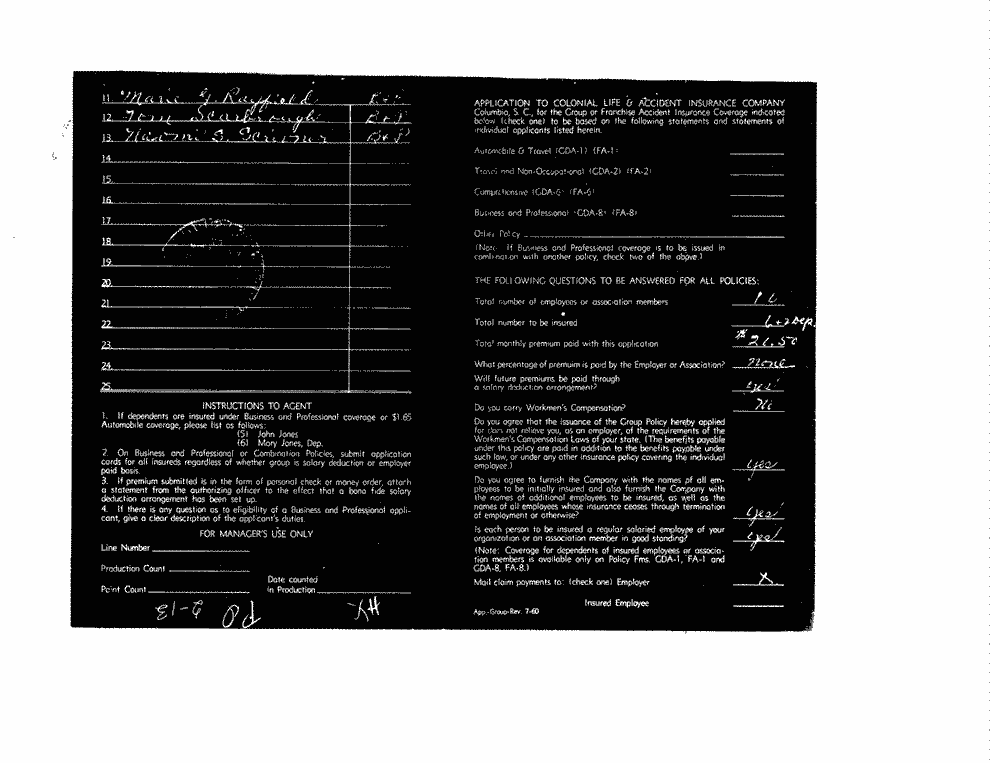 11. Marie G. Rayfield B+P
12. Tony Scarbrough B+P
13. Naomi S. B+P
14.
15.
16.
17.
18.
19.
20.
21.
22.
23.
24.
25.
INSTRUCTIONS TO AGENT
1. If dependents are insured under Business and Professional coverage or $1.65
Automobile coverage, please list as follows:
(5) John Jones
(6) Mary Jones, Dep.
2. On Business and Professional or Combination Policies, submit application
cards for all insureds regardless of whether group is salary deduction or employer
paid basis.
3. If premium submitted is in the form of personal check or money order, attach
a statement from the authorizing officer to the effect that a bona fide salary
deduction arrangement has been set up.
4. If there is any question as to eligibility of a Business and Professional appli-
cant, give a clear description of the applicant's duties.
FOR MANAGER'S USE ONLY
Line Number
Production Count
Point Count
Date counted
in Production
APPLICATION TO COLONIAL LIFE & ACCIDENT INSURANCE COMPANY
Columbia, S. C., for the Group or Franchise Accident Insurance Coverage indicated
below (check one) to be based on the following statements and statements of
individual applicants listed herein.
Automobile & Travel (GDA-1) (FA-1)
Travel and Non-Occupational (GDA-2) (FA-2)
Comprehensive (GDA-6) (FA-6)
Business and Professional (GDA-8) (FA-8)
Other Policy
(Note: If Business and Professional coverage is to be issued in
combination with another policy, check two of the above.)
THE FOLLOWING QUESTIONS TO BE ANSWERED FOR ALL POLICIES:
Total number of employees or association members
Total number to be insured 6+2 Dep.
Total monthly premium paid with this application
What percentage of premium is paid by the Employer or Association? None
Will future premiums be paid through
a salary deduction arrangement? yes
Do you carry Workmen's Compensation? No
Do you agree that the issuance of the Group Policy hereby applied
for does not relieve you, as an employer, of the requirements of the
Workmen's Compensation Laws of your state. (The benefits payable
under this policy are paid in addition to the benefits payable under
such law, or under any other insurance policy covering the individual
employee.) yes
Do you agree to furnish the Company with the names of all em-
ployees to be initially insured and also furnish the Company with
the names of additional employees to be insured, as well as the
names of all employees whose insurance ceases through termination
of employment or otherwise? yes
Is each person to be insured a regular salaried employe of your
organization or an association member in good standing? yes
(Note: Coverage for dependents of insured employees or associa-
tion members is available only on Policy Fms. GDA-1, FA-1 and
GDA-8, FA-8.)
Mail claim payments to: (check one) Employer X
Insured Employee
App.-Group-Rev. 7-60